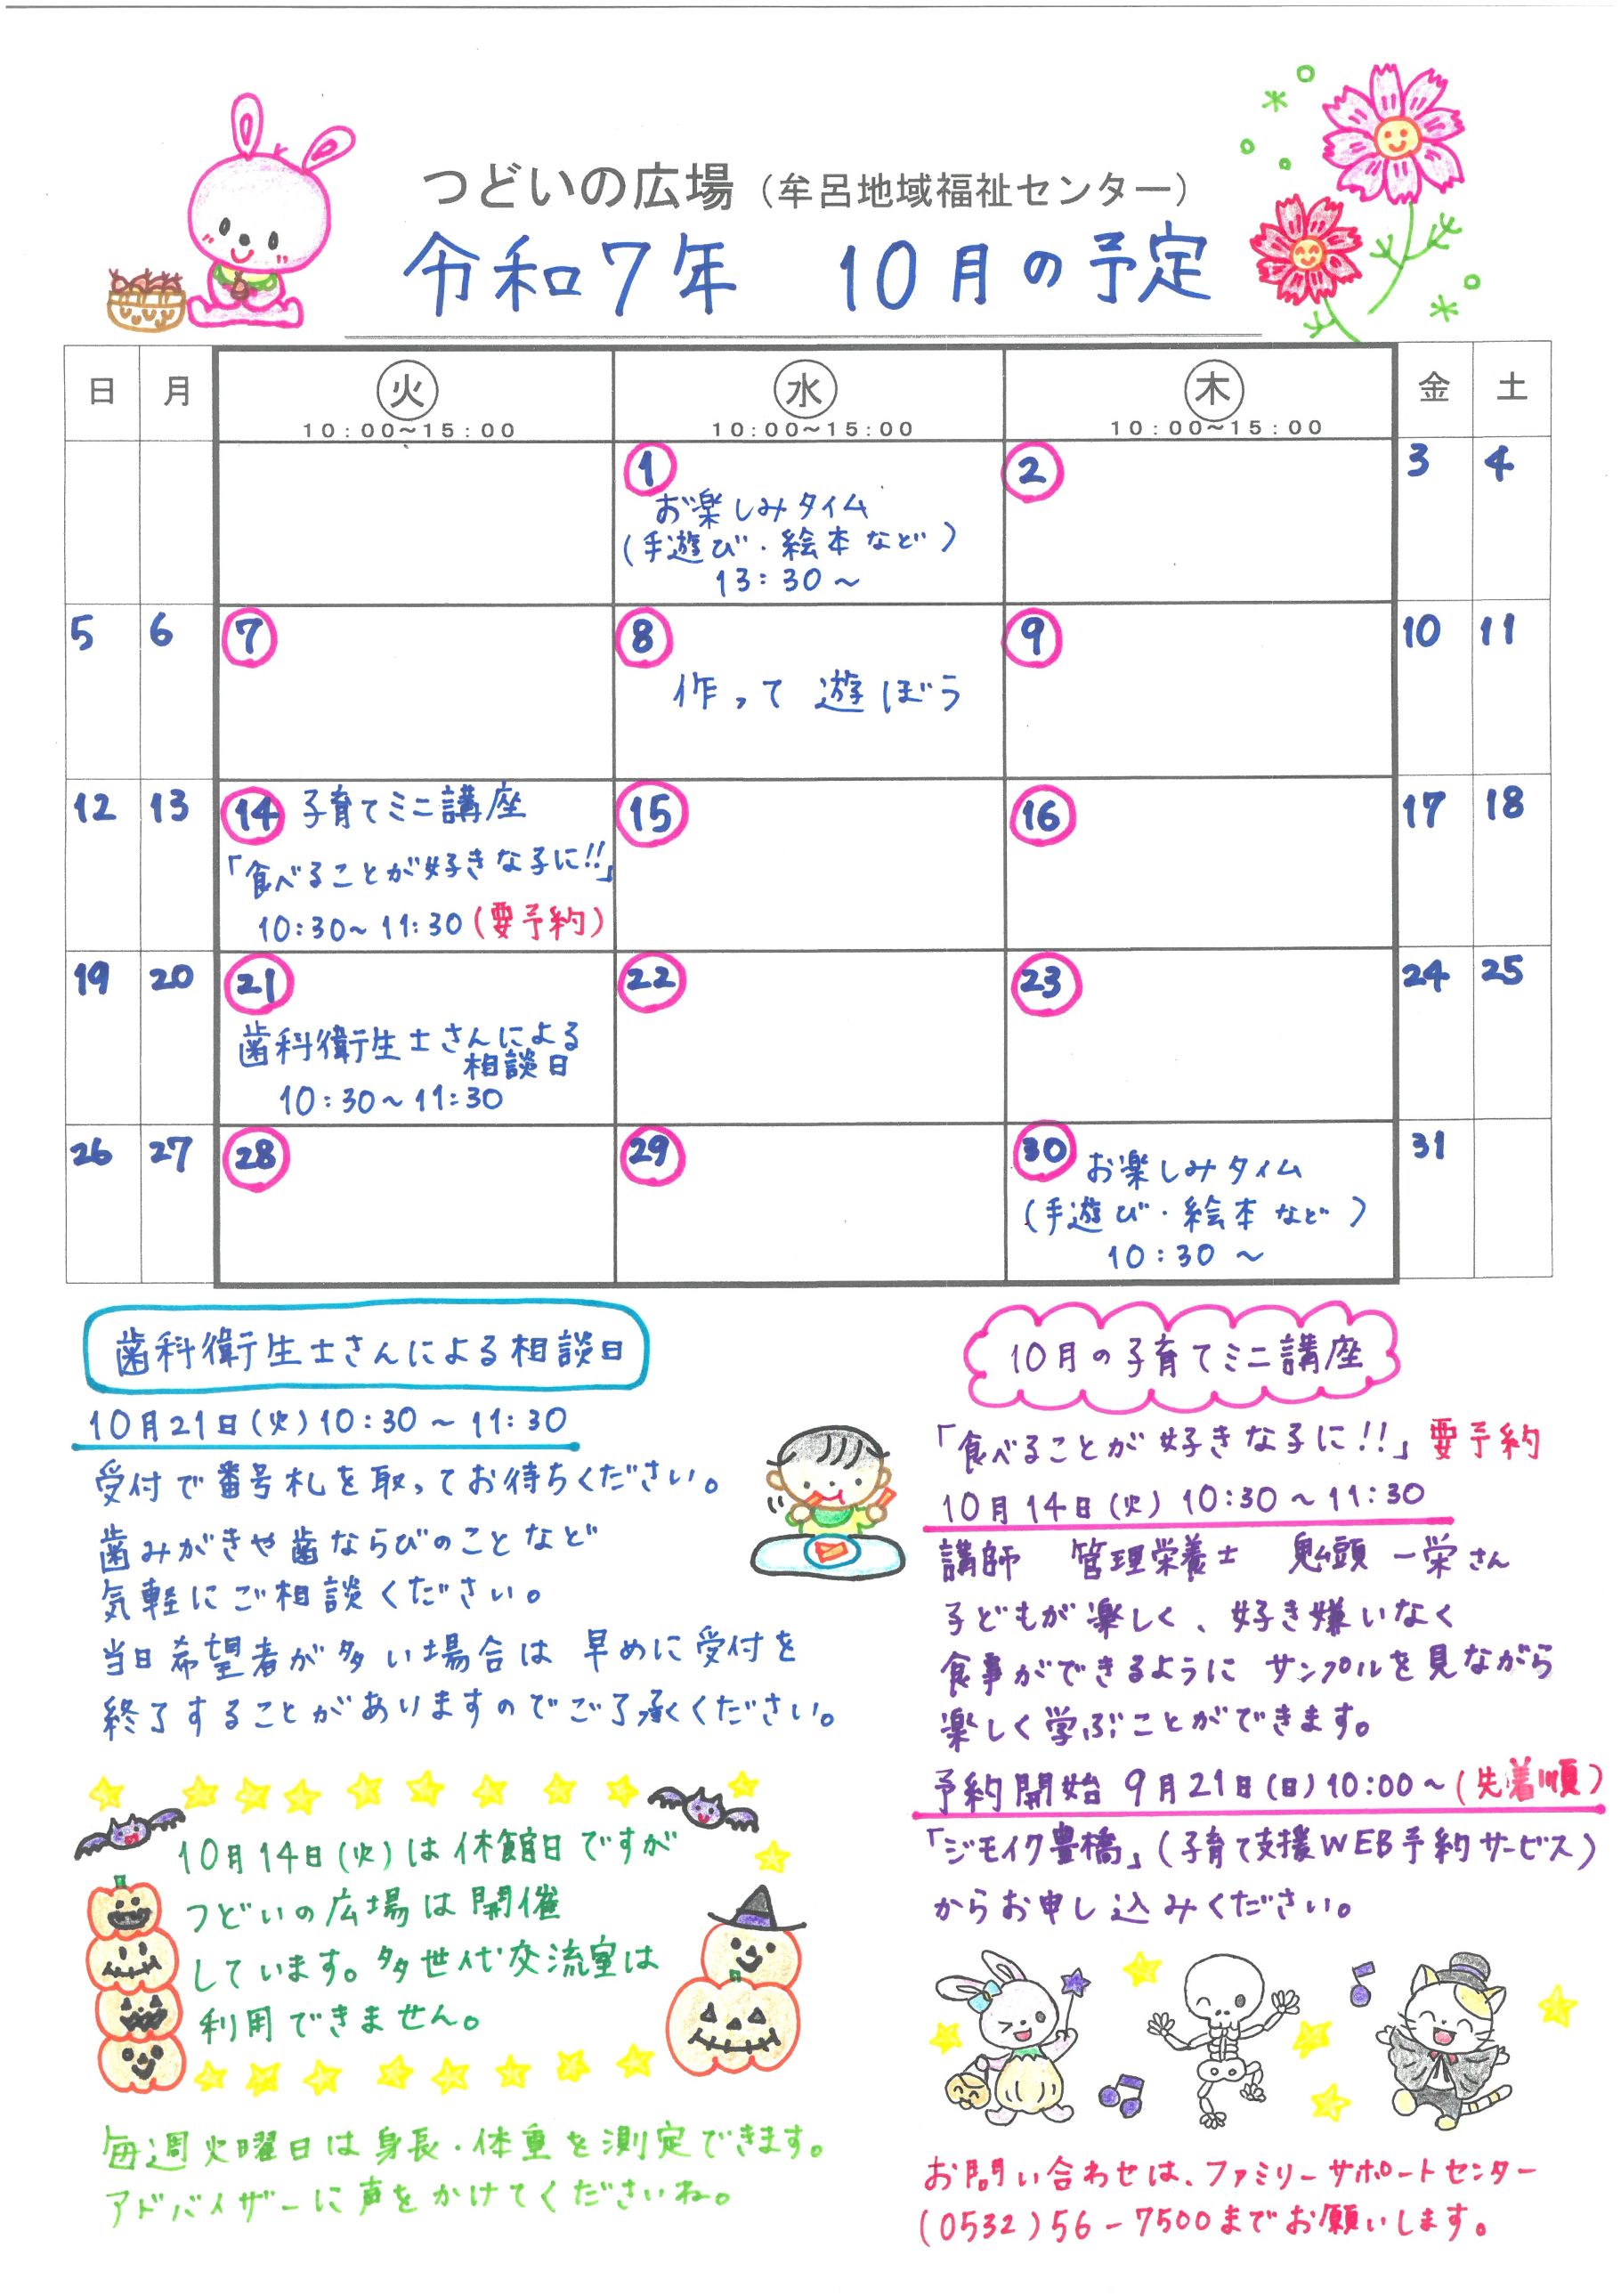 つどいの広場（牟呂地域福祉センター）
令和7年　10月の予定
日 月 火 水 木 金 土
10:00～15:00 10:00～15:00 10:00～15:00
1 2 3 4
お楽しみタイム
(手遊び・絵本など)
13:30～
5 6 7 8 9 10 11
作って遊ぼう
12 13 14 子育てミニ講座 15 16 17 18
「食べることが好きな子に!!」
10:30～11:30(要予約)
19 20 21 22 23 24 25
歯科衛生士さんによる
相談日
10:30～11:30
26 27 28 29 30 31
お楽しみタイム
(手遊び・絵本など)
10:30～
歯科衛生士さんによる相談日
10月21日(火)10:30～11:30
受付で番号札を取ってお待ちください。
歯みがきや歯ならびのことなど
気軽にご相談ください。
当日希望者が多い場合は早めに受付を
終了することがありますのでご了承ください。
10月の子育てミニ講座
「食べることが好きな子に!!」要予約
10月14日(火)10:30～11:30
講師　管理栄養士　鬼頭 一栄さん
子どもが楽しく、好き嫌いなく
食事ができるように サンプルを見ながら
楽しく学ぶことができます。
予約開始 9月21日(日)10:00～(先着順)
「ジモイク豊橋」(子育て支援WEB予約サービス)
からお申し込みください。
10月14日(火)は休館日ですが
つどいの広場は開催
しています。多世代交流室は
利用できません。
毎週火曜日は身長・体重を測定できます。
アドバイザーに声をかけてくださいね。
お問い合わせは、ファミリーサポートセンター
(0532)56-7500までお願いします。